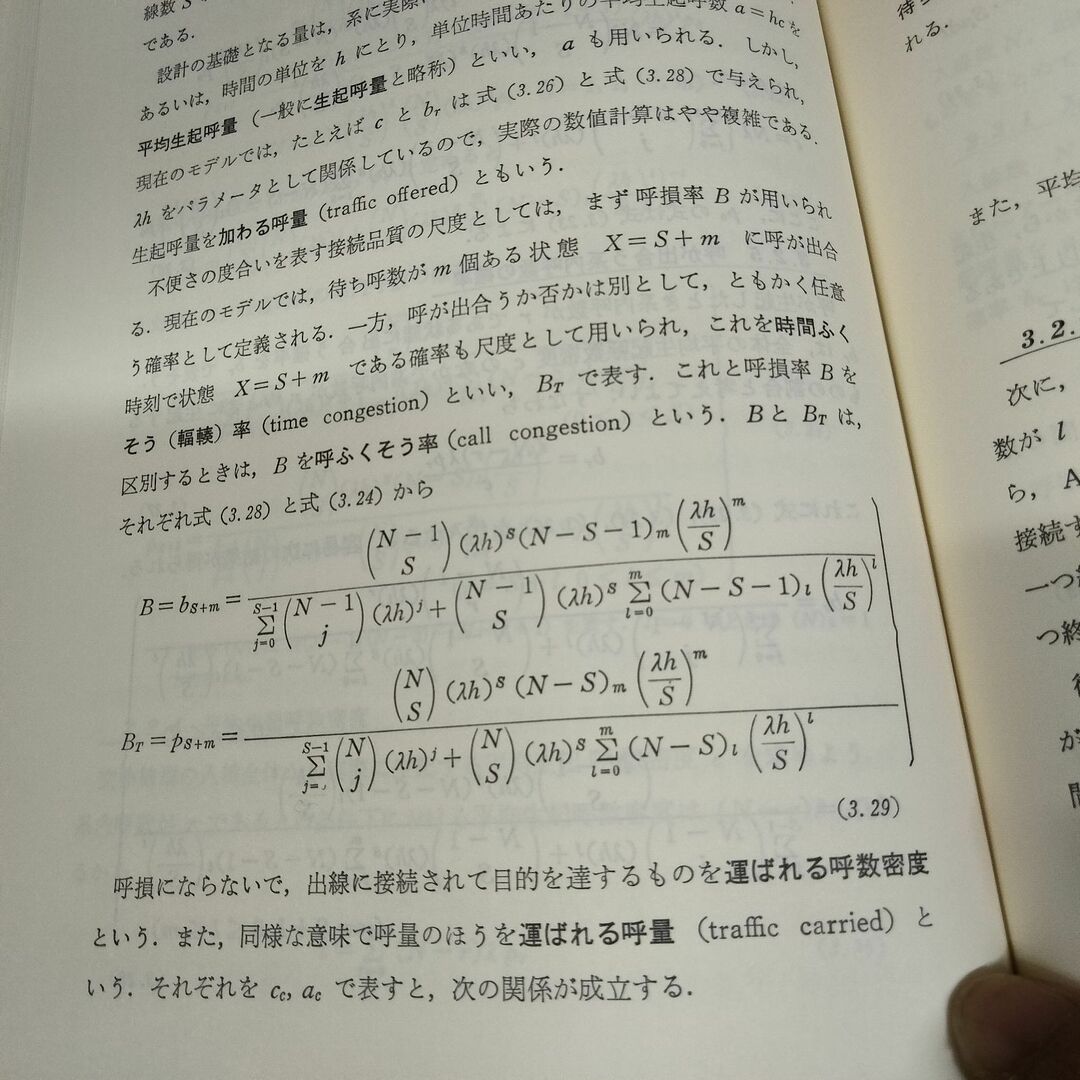 線数 S
である.
設計の基礎となる量は, 系に実際に
あるいは, 時間の単位を h にとり, 単位時間あたりの平均生起呼数 a = hc を
平均生起呼量 (一般に生起呼量と略称) といい, a も用いられる. しかし,
現在のモデルでは, たとえば c と b_r は式 (3.26) と式 (3.28) で与えられ,
λh をパラメータとして関係しているので, 実際の数値計算はやや複雑である.
生起呼量を加わる呼量 (traffic offered) ともいう.
不便さの度合いを表す接続品質の尺度としては, まず呼損率 B が用いられ
る. 現在のモデルでは, 待ち呼数が m 個ある状態 X=S+m に呼が出合
う確率として定義される. 一方, 呼が出合うか否かは別として, ともかく任意
時刻で状態 X=S+m である確率も尺度として用いられ, これを時間ふく
そう (輻輳) 率 (time congestion) といい, B_T で表す. これと呼損率 B を
区別するときは, B を呼ふくそう率 (call congestion) という. B と B_T は,
それぞれ式 (3.28) と式 (3.24) から
B = b_{S+m} = \frac{\binom{N-1}{S} (λh)^S (N-S-1)_m \left(\frac{λh}{S}\right)^m}{\sum_{j=0}^{S-1} \binom{N-1}{j} (λh)^j + \binom{N-1}{S} (λh)^S \sum_{l=0}^{m} (N-S-1)_l \left(\frac{λh}{S}\right)^l}
B_T = p_{S+m} = \frac{\binom{N}{S} (λh)^S (N-S)_m \left(\frac{λh}{S}\right)^m}{\sum_{j=}^{S-1} \binom{N}{j} (λh)^j + \binom{N}{S} (λh)^S \sum_{l=0}^{m} (N-S)_l \left(\frac{λh}{S}\right)^l}
(3.29)
呼損にならないで, 出線に接続されて目的を達するものを運ばれる呼数密度
という. また, 同様な意味で呼量のほうを運ばれる呼量 (traffic carried) と
いう. それぞれを c_c, a_c で表すと, 次の関係が成立する.
れる.
また, 平均
3.2.
次に,
数が l
ら, A
接続す
一つ
つ終
が
間